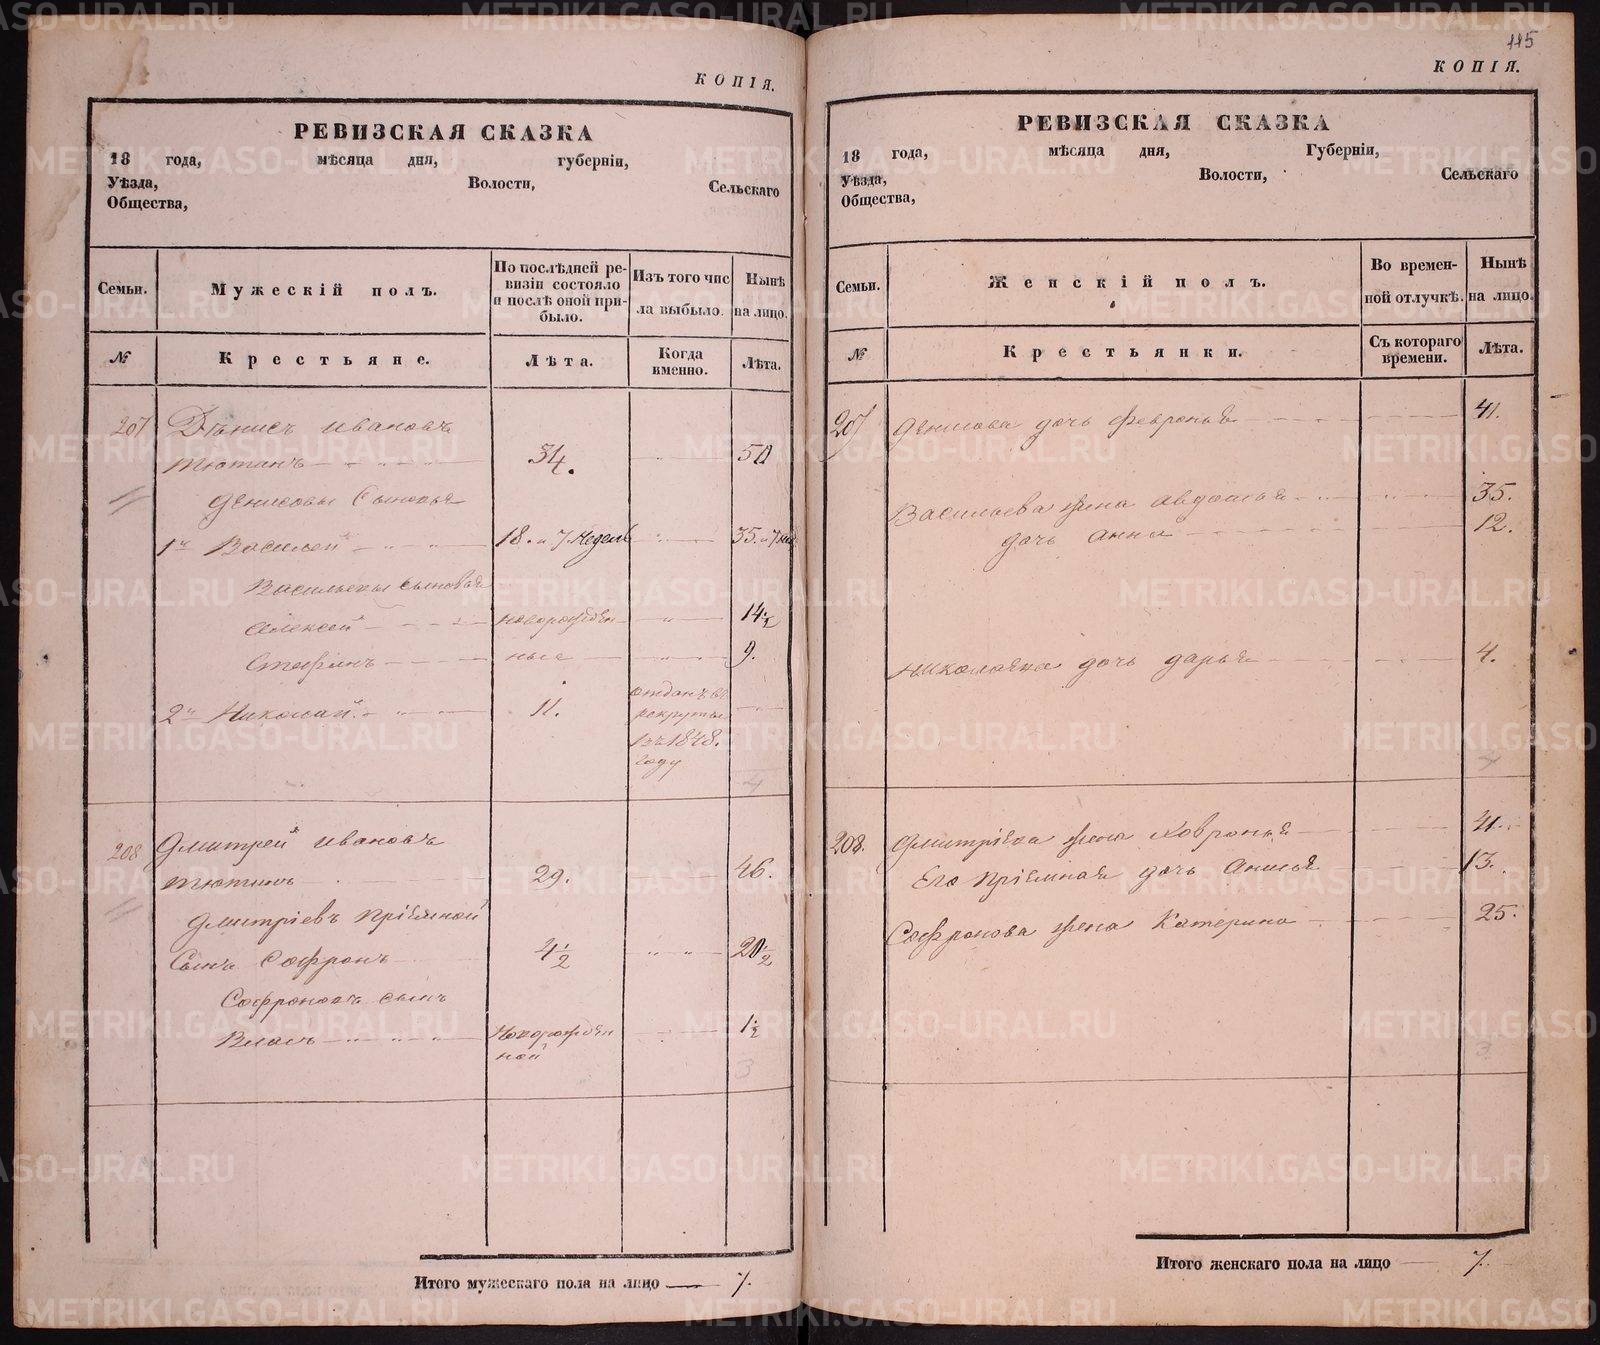 КОПІЯ.
РЕВИЗСКАЯ СКАЗКА
18 года, мѣсяца дня, губерніи,
Уѣзда, Волости, Сельскаго
Общества,
Семьи. Мужескій полъ. По послѣдней ре-визіи состояло и послѣ оной при-было. Изъ того чис ла выбыло. Нынѣ на лицо.
№ Крестьяне. Лѣта. Когда именно. Лѣта.
207 Дѣнисъ Ивановъ
Тютинъ 34. 50
Денисовы Сыновья
1й Василей 18. и 7. Недель 35. и 7
Васильевы сыновья
Алексей новорожден 14 1/2
Стефанъ ные 9.
2й Николай 11. отданъ въ
рекруты
въ 1848.
году
4
208 Дмитрей Ивановъ
Тютинъ 29. 46.
Дмитріевъ пріемной
Сынъ Софронъ 4 1/2 20 1/2
Софроновъ сынъ
Власъ Новорожден 1 1/2
ной
3
Итого мужескаго пола на лицо 7.
115
КОПІЯ.
РЕВИЗСКАЯ СКАЗКА
18 года, мѣсяца дня, Губерніи,
Уѣзда, Волости, Сельскаго
Общества,
Семьи. Женскій полъ. Во времен-ной отлучкѣ. Нынѣ на лицо.
№ Крестьянки. Съ котораго времени. Лѣта.
207 Денисова дочь Февронья 41.
Васильева жена Авдотья 35.
дочь Анна 12.
Николаева дочь Дарья 4.
4
208. Дмитріева жена Ховронья 41.
Его пріемная дочь Анисья 13.
Софронова жена Катерина 25.
3
Итого женскаго пола на лицо 7.
METRIKI.GASO-URAL.RU